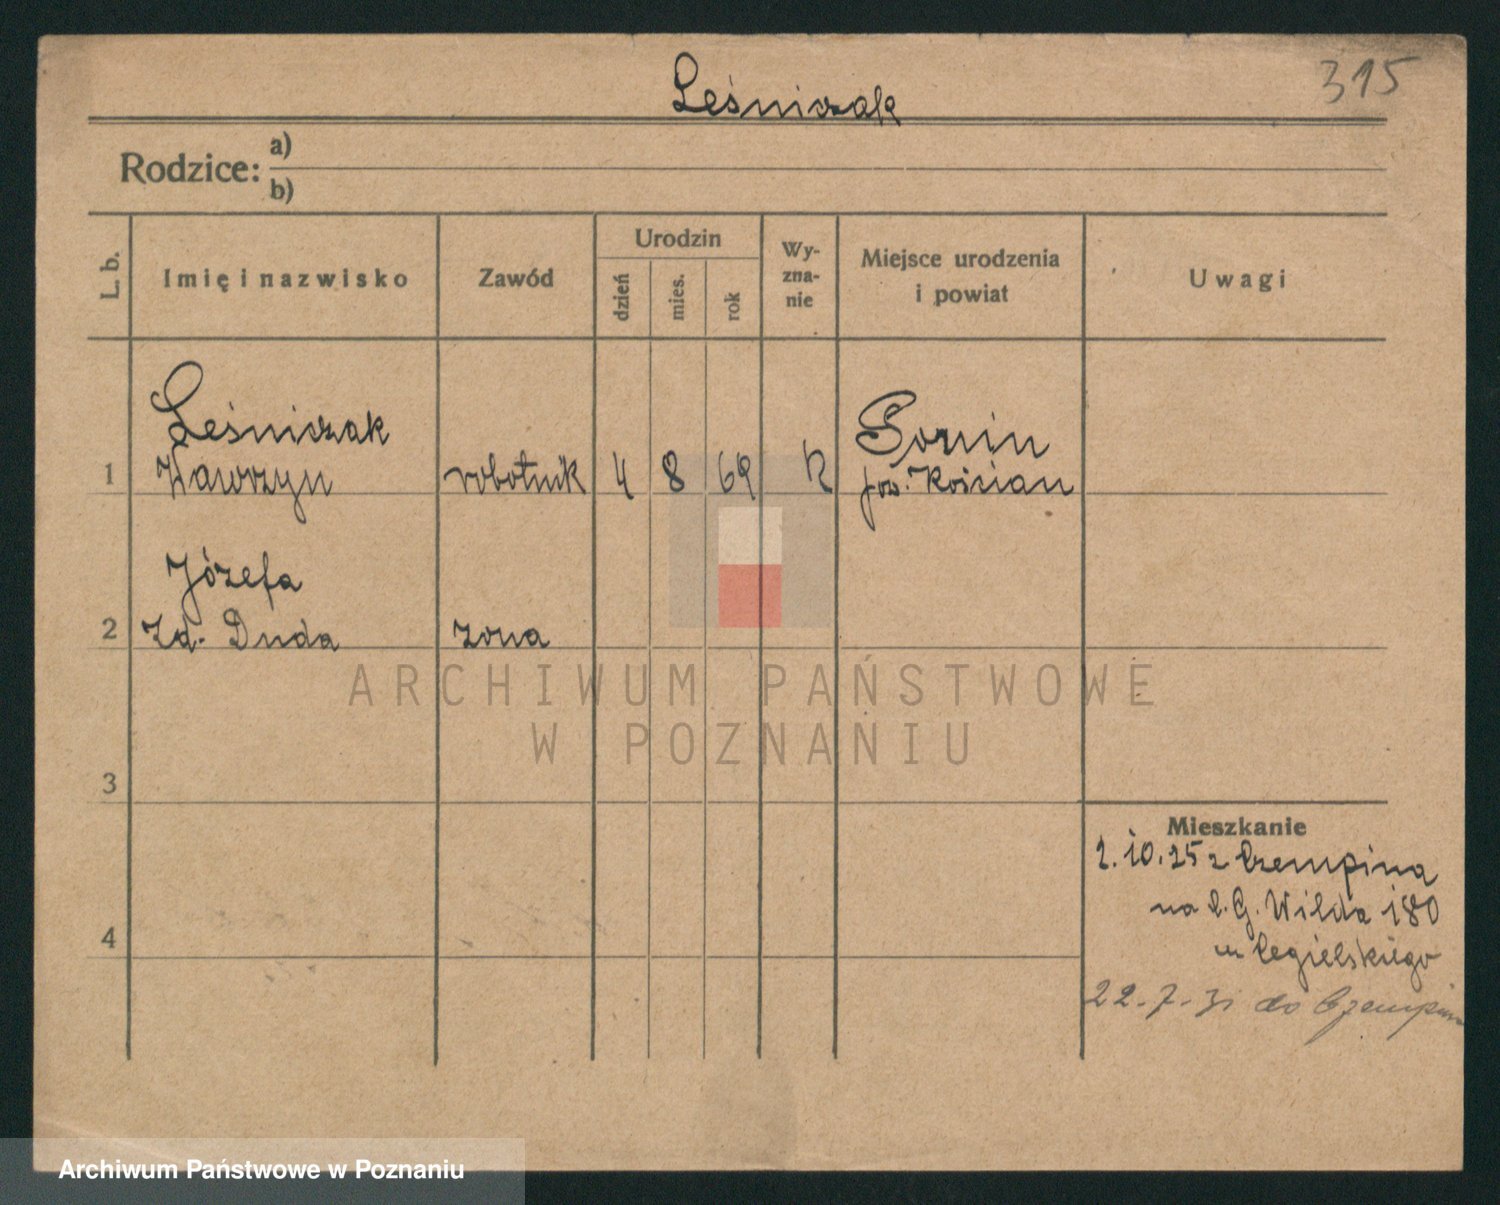 315
Leśniczak
Rodzice: a)
b)
L. b.
Imię i nazwisko
Zawód
Urodzin
dzień
mies.
rok
Wy-
zna-
nie
Miejsce urodzenia
i powiat
Uwagi
1
Leśniczak
Wawrzyn
robotnik
4
8
69
R
Gorzin
pow. Kościan
2
Józefa
zd. Duda
żona
3
4
Mieszkanie
1.10.25 z Czempina
na d. G. Wilda 180
u Cegielskiego
22-7-31 do Czempina
ARCHIWUM PAŃSTWOWE
W POZNANIU
Archiwum Państwowe w Poznaniu